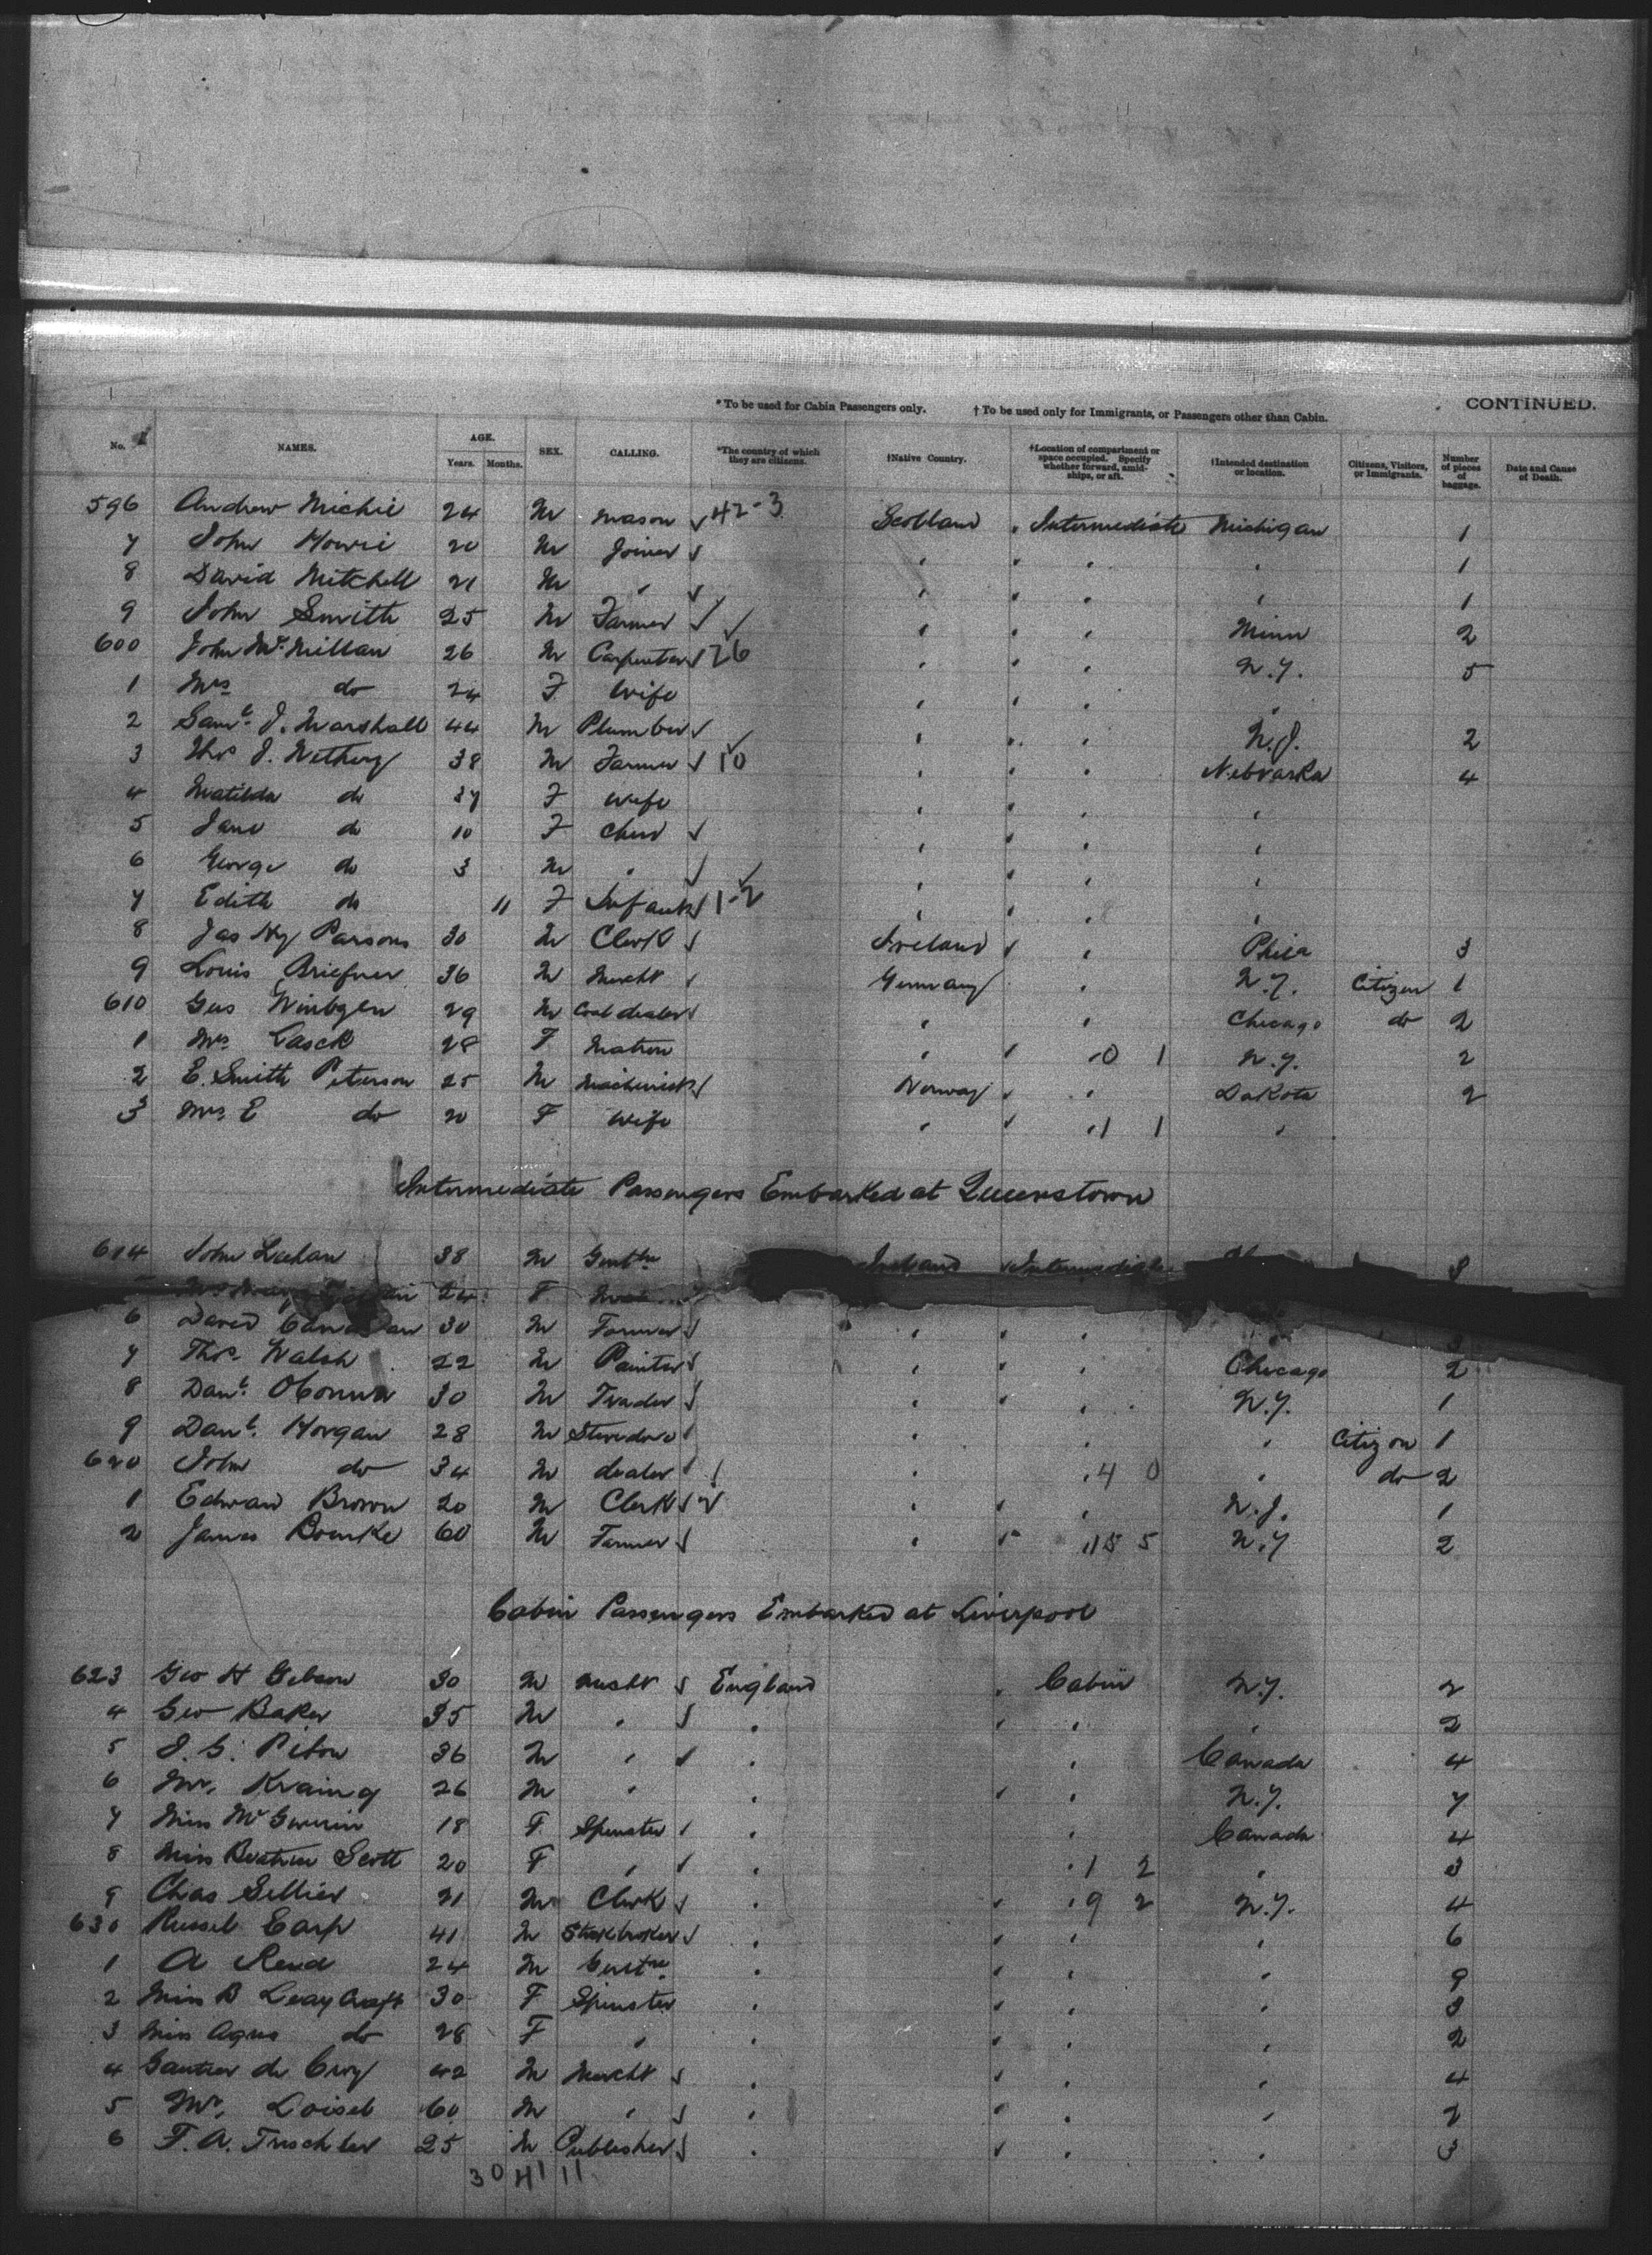 * To be used for Cabin Passengers only. † To be used only for Immigrants, or Passengers other than Cabin. CONTINUED.
No. NAMES. AGE. Years. Months. SEX. CALLING. *The country of which they are citizens. †Native Country. †Location of compartment or space occupied. Specify whether forward, amidships, or aft. †Intended destination or location. Citizens, Visitors, or Immigrants. Number of pieces of baggage. Date and Cause of Death.
596 Andrew Michie 24 M Mason 42-3 Scotland Intermediate Michigan 1
7 John Howie 20 M Joiner 1
8 David Mitchell 21 M " 1
9 John Smith 25 M Farmer Minn 2
600 John McMillan 26 M Carpenter 26 N.Y. 5
1 Mrs do 24 F Wife
2 Saml. J. Marshall 44 M Plumber N.J. 2
3 Thos J. 38 M Farmer 10 Nebraska 4
4 Matilda do 37 F Wife
5 Jane do 10 F Child
6 George do 3 M "
7 Edith do 11 F Infant 1-2
8 Jas Hy Parsons 30 M Clerk Ireland Phila 3
9 Louis 36 M Mercht Germany N.Y. Citizen 1
610 Gus 29 M Coal dealer Chicago do 2
1 Mrs Lasck 28 F Matron 0 1 N.Y. 2
2 E. Smith Peterson 25 M Machinist Norway Dakota 2
3 Mrs E do 20 F Wife 1 1
Intermediate Passengers Embarked at Queenstown
614 John 38 M Gentln Ireland Intermediate
24 F
6 David 30 M Farmer
7 Thos. Walsh 22 M Painter Chicago 2
8 Danl. 30 M Trader N.Y. 1
9 Danl. Horgan 28 M Stevedore Citizen 1
620 John do 34 M dealer 4 0 do 2
1 Edward Brown 20 M Clerk 2 N.J. 1
2 James Bourke 60 M Farmer 15 5 N.Y 2
Cabin Passengers Embarked at Liverpool
623 Geo H Gibson 30 M Mercht England Cabin N.Y. 2
4 Geo Baker 35 M " 2
5 J. G. 36 M " Canada 4
6 Mr. 26 M " N.Y. 7
7 Miss 18 F Spinster Canada 4
8 Miss Beatrice Scott 20 F " 1 2 3
9 Chas Sellier 21 M Clerk 9 2 N.Y. 4
630 Russel Earp 41 M Stockbroker 6
1 A 24 M Gentln 9
2 Miss B Leaycraft 30 F Spinster 3
3 Miss Agnes do 28 F " 2
4 Gautier de 42 M Mercht 4
5 Mr. Loisel 60 M " 2
6 F. A. Trischler 25 M Publisher 3
30 41 11